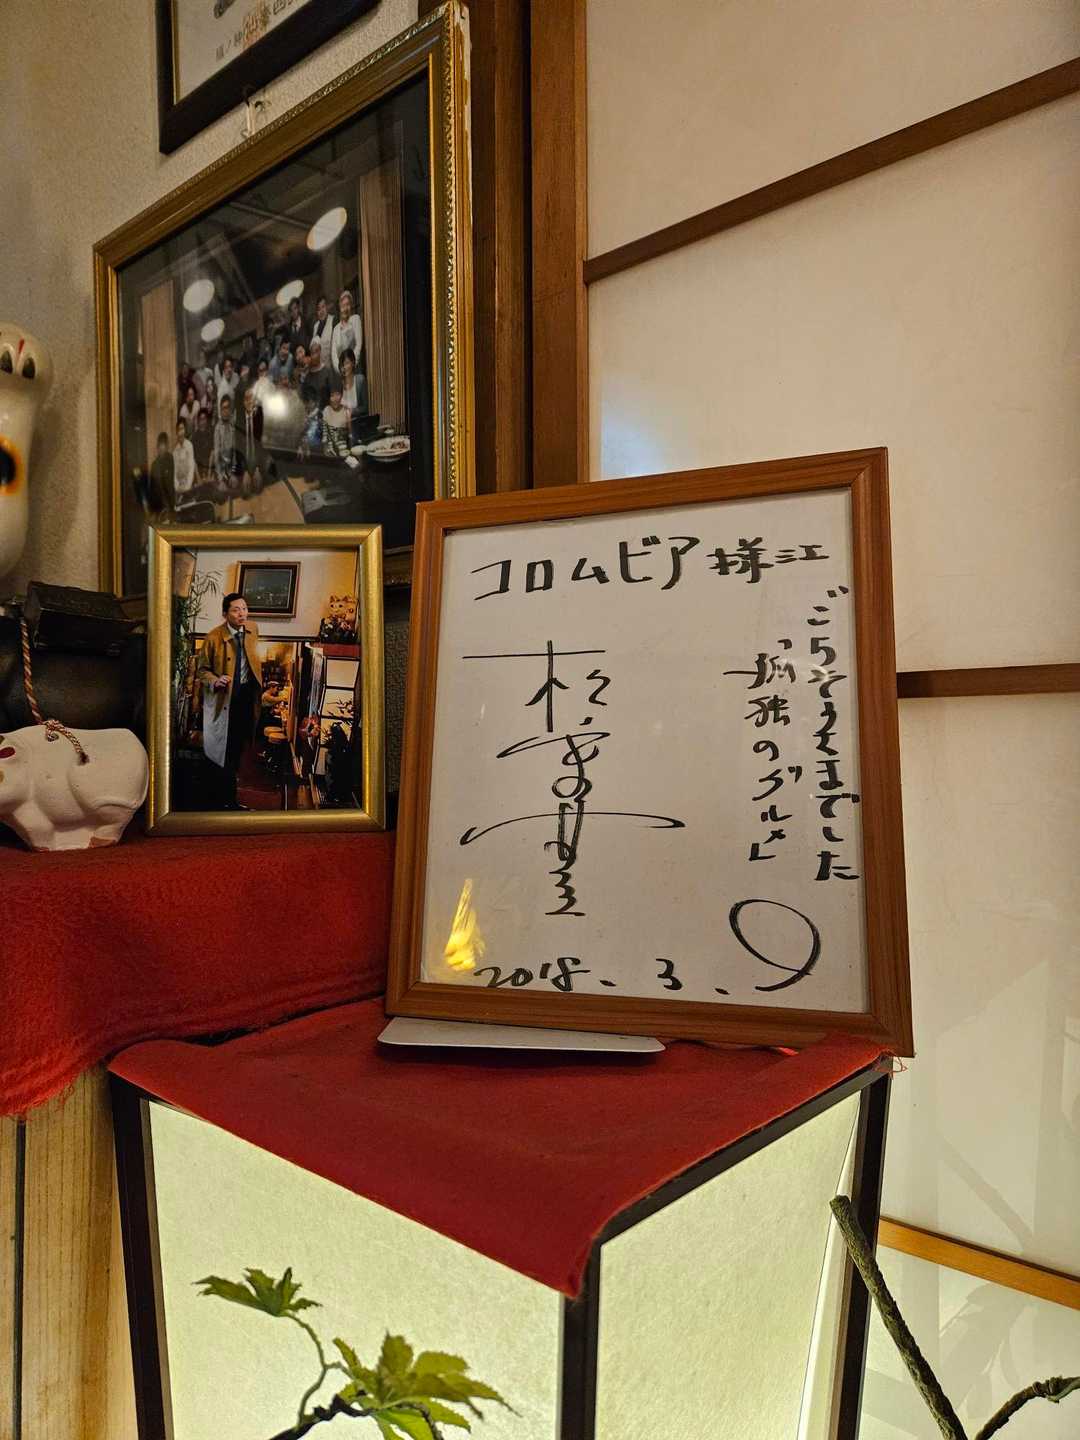 コロムビア様江
ごちそうさまでした
「孤独のグルメ」
松重豊
2018.3.9